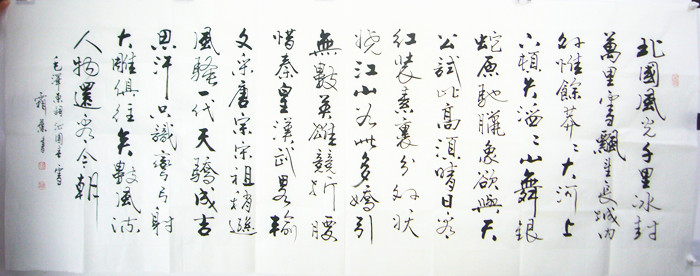 北國風光千里冰封
萬里雪飄望長城內
外惟餘莽々大河上
下頓失滔々山舞銀
蛇原馳臘象欲與天
公試比高須晴日看
紅裝素裹分外妖
嬈江山如此多嬌引
無數英雄競折腰
惜秦皇漢武略輸
文采唐宗宋祖稍遜
風騷一代天驕成吉
思汗只識彎弓射
大雕俱往矣數風流
人物還看今朝
毛澤東詞沁園春雪
霜葉書